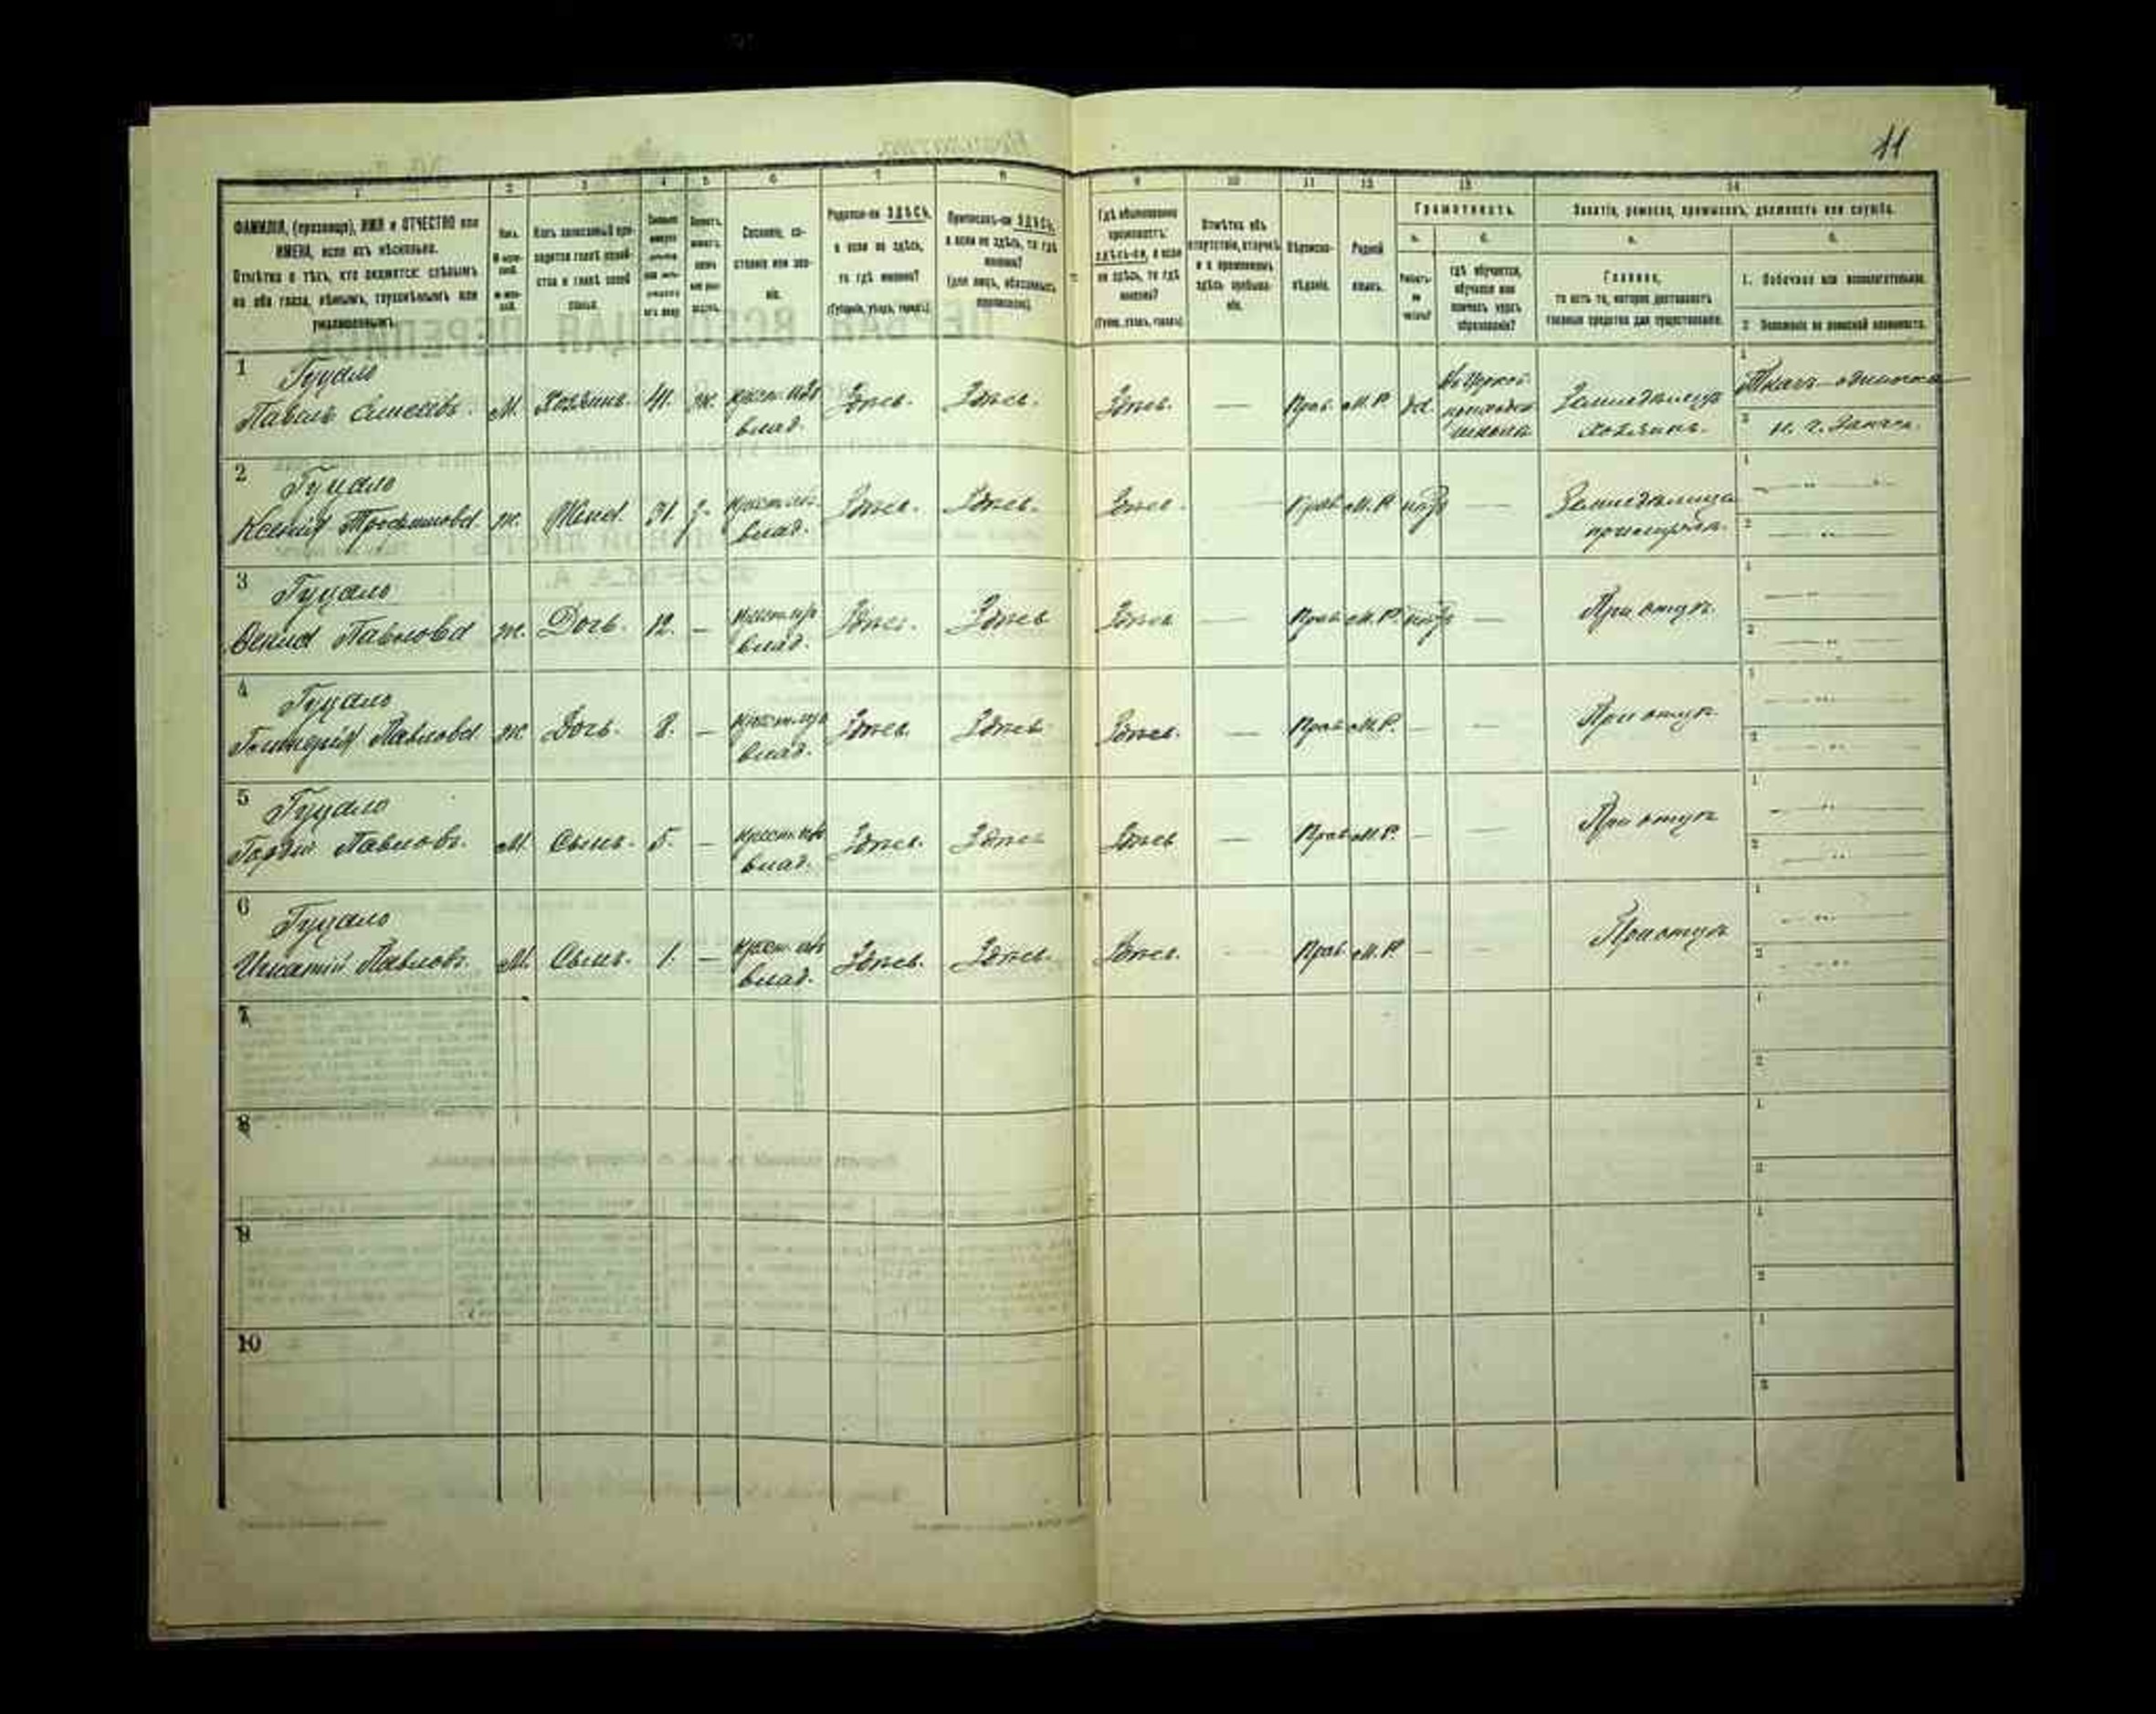 11
1 2 3 4 5 6 7 8 9 10 11 12 13 14
ФАМИЛІЯ, (прозвище), ИМЯ и ОТЧЕСТВО или
ИМЕНА, если ихъ нѣсколько.
Отмѣтка о тѣхъ, кто окажется: слѣпымъ
на оба глаза, нѣмымъ, глухонѣмымъ или
умалишеннымъ.
Полъ.
Какъ записанный при-
ходится главѣ хозяй-
ства и главѣ своей
семьи.
Сословіе, со-
стояніе или зва-
ніе.
Родился-ли ЗДѢСЬ,
а если не здѣсь,
то гдѣ именно?
(Губернія, уѣздъ, городъ).
Приписанъ-ли ЗДѢСЬ,
а если не здѣсь, то гдѣ
именно?
(для лицъ, обязанныхъ
припискою).
Гдѣ обыкновенно
проживаетъ:
здѣсь-ли, а если
не здѣсь, то гдѣ
именно?
(Губ., уѣздъ, городъ).
Отмѣтка объ
отсутствіи, отлучкѣ
и о временномъ
здѣсь пребыва-
ніи.
Вѣроиспо-
вѣданіе.
Родной
языкъ.
Грамотность.
а. б.
Умѣетъ-
ли
читать?
гдѣ обучается,
обучался или
кончилъ курсъ
образованія?
Занятіе, ремесло, промыселъ, должность или служба.
а. б.
Главное,
то есть то, которое доставляетъ
главныя средства для существованія.
1. Побочное или вспомогательное.
2. Положеніе по воинской повинности.
1 Гуцало
Павелъ Алексѣевъ. М. Хозяинъ. 41. ж. крест. изъ влад. Здѣсь. Здѣсь. Здѣсь. — Прав. М.Р. да. Въ Церков. приходск. школѣ Земледѣлецъ хозяинъ. 1 Ткачъ-одиночка
2
2 Гуцало
Ксенія Трофимова ж. Жена. 31. крест. изъ влад. Здѣсь. Здѣсь. Здѣсь. — Прав. М.Р. нѣтъ — Земледѣлица
3 Гуцало
Павлова ж. Дочь. 12. — крест. изъ влад. Здѣсь. Здѣсь Здѣсь — Прав. М.Р. нѣтъ — При отцѣ.
4 Гуцало
Павлова ж Дочь. 8. — крест. изъ влад. Здѣсь. Здѣсь Здѣсь. — Прав. М.Р. — — При отцѣ
5 Гуцало
Гордѣй Павловъ. М. Сынъ. 5. — крест. изъ влад. Здѣсь. Здѣсь Здѣсь — Прав. М.Р. — — При отцѣ
6 Гуцало
Игнатій Павловъ. М. Сынъ. 1. — крест. изъ влад. Здѣсь. Здѣсь. Здѣсь. — Прав. М.Р. — — При отцѣ
7
8
9
10